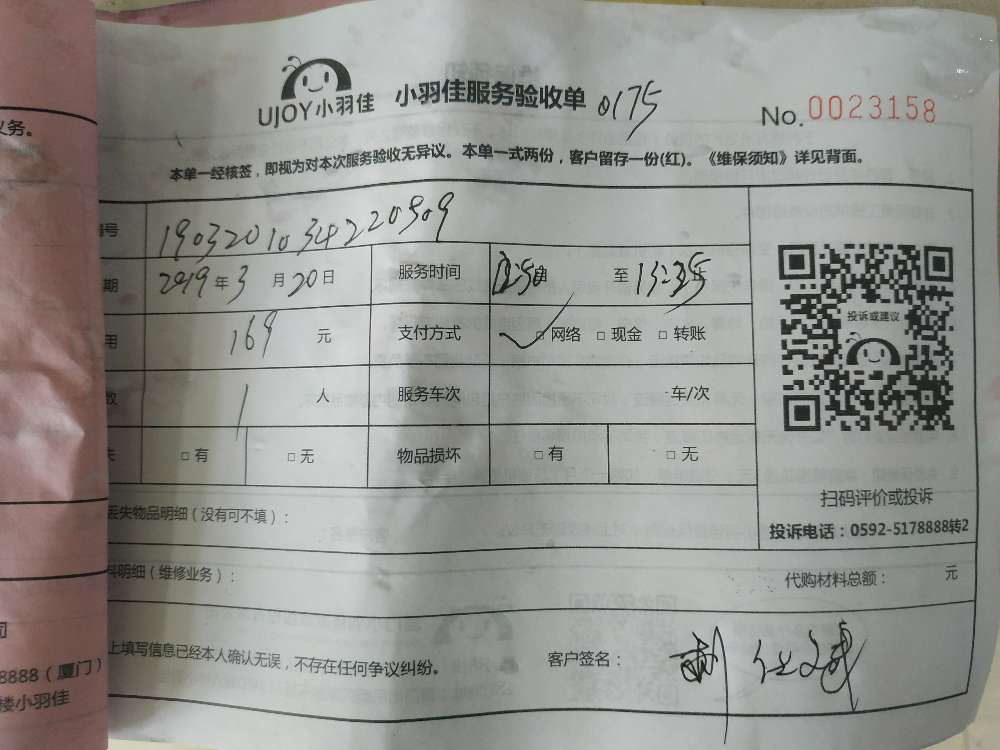 义务。
UJOY小羽佳 小羽佳服务验收单 0175 No.0023158
本单一经核签，即视为对本次服务验收无异议。本单一式两份，客户留存一份(红)。《维保须知》详见背面。
编号 1903201034220509
期 2019年3月20日 服务时间 至 13:35
用 169 元 支付方式 ✓□网络 □现金 □转账
数 1 人 服务车次 车/次
失 □有 □无 物品损坏 □有 □无
投诉或建议
扫码评价或投诉
投诉电话：0592-5178888转2
丢失物品明细（没有可不填）：
料明细（维修业务）： 代购材料总额： 元
上填写信息已经本人确认无误，不存在任何争议纠纷。 客户签名：
司
8888（厦门）
楼小羽佳